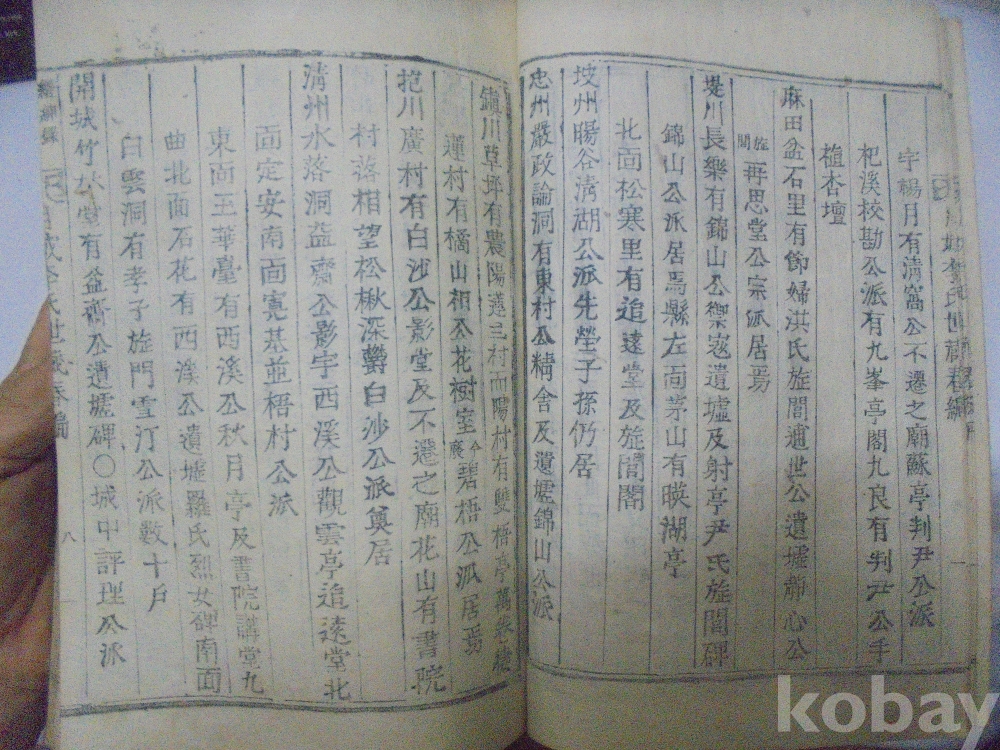 宇暢月有清窩公不遷之廟蘇亭判尹公派
杞溪校勘公派有九峯亭閣九良有判尹公手
植杏壇
麻田盆石里有節婦洪氏旌閭遯世公遺墟靜心公
旌閭再思堂公宗派居焉
堤川長樂有錦山公禦寇遺墟及射亭尹氏旌閭碑
錦山公派居馬縣左面茅山有暎湖亭
北面松寒里有追遠堂及旌閭閣
坡州暘谷淸湖公派先塋子孫仍居
忠州嚴政論洞有東村公精舍及遺墟錦山公派
鎭川草坪有農陽蓮三村而陽村有雙梧亭萬卷樓
蓮村有橘山相公花樹室今廢碧梧公派居焉
抱川廣村有白沙公影堂及不遷之廟花山有書院
村落相望松楸深欝白沙公派奠居
淸州水落洞益齋公影宇西溪公觀雲亭追遠堂北
面定安南面憲基並梧村公派
東面玉華臺有西溪公秋月亭及書院講堂九
曲北面石花有西溪公遺墟羅氏烈女碑南面
白雲洞有孝子旌門雪汀公派數十戶
開城竹林堂有益齋公遺墟碑○城中評理公派
八
kobay